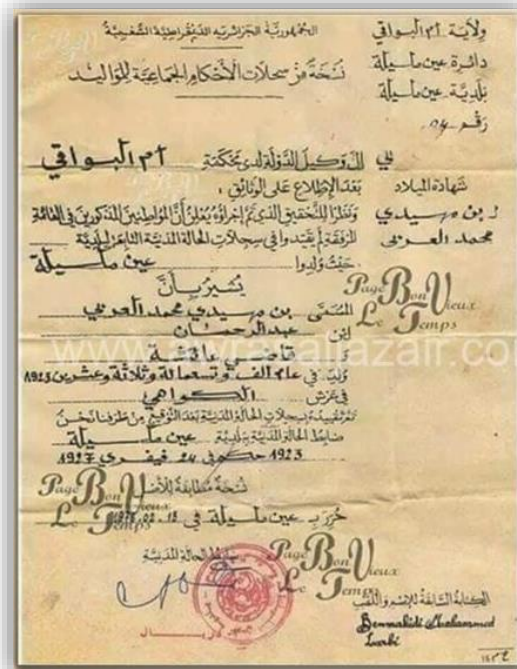 الجمهورية الجزائرية الديمقراطية الشعبية
ولاية أم البواقي
دائرة عين مليلة
بلدية عين مليلة
رقم
نسخة من سجلات الأحكام الجماعية للمواليد
شهادة الميلاد
بن مهيدي
محمد العربي
إن وكيل الدولة لدى محكمة أم البواقي
بعد الإطلاع على الوثائق :
ونظرا للتحقيق الذي تم إجراؤه يعلن أن المواطنين المذكورين في القائمة
المرفقة لم يقيدوا في سجلات الحالة المدنية التابعة لبلدية
حيث ولدوا عين مليلة
يشير بأن
المسمى بن مهيدي محمد العربي
ابن عبد الرحمان
و قاضي عائشة
ولد في عام ألف وتسعمائة وثلاثة وعشرين 1923
في عرش الكواهي
تم تقييده بسجلات الحالة المدنية بعد التوقيع من طرفنا نحن
ضابط الحالة المدنية ببلدية عين مليلة
1923 حكم في 24 فيفري 1927
نسخة مطابقة للأصل
حرر بـ عين مليلة في
ضابط الحالة المدنية
الكتابة السابقة للإسم واللقب
Benmahidi Mohammed
Larbi
Page Bon Vieux
Le Temps
Page Bon
Le Temps
Page Bon Vieux
Le Temps